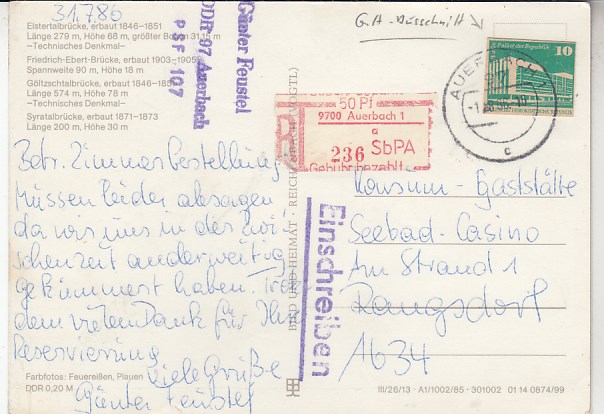 31.7.86
Elstertalbrücke, erbaut 1846–1851
Länge 279 m, Höhe 68 m, größter Bogen 31,15 m
–Technisches Denkmal–
Friedrich-Ebert-Brücke, erbaut 1903–1905
Spannweite 90 m, Höhe 18 m
Göltzschtalbrücke, erbaut 1846–1851
Länge 574 m, Höhe 78 m
–Technisches Denkmal–
Syratalbrücke, erbaut 1871–1873
Länge 200 m, Höhe 30 m
Günter Feustel
DDR 97 Auerbach
PSF 107
Betr. Zimmerbestellung
Müssen leider absagen
da wir uns in der zwi
schenzeit anderweitig
gekümmert haben. Trotz
dem vielen Dank für Ihre
Reservierung
viele Grüße
Günter Feustel
Farbfotos: Feuereißen, Plauen
DDR 0,20 M
BILD UND HEIMAT · REICHENBACH (VOGTL)
G.A.-Ausschnitt
10
AUERBACH
c
50 Pf
9700 Auerbach 1
a
236 SbPA
Gebühr bezahlt
Einschreiben
Konsum-Gaststätte
Seebad-Casino
Am Strand 1
Rangsdorf
1634
III/26/13 · A1/1002/85 · 301002 01 14 0674/99